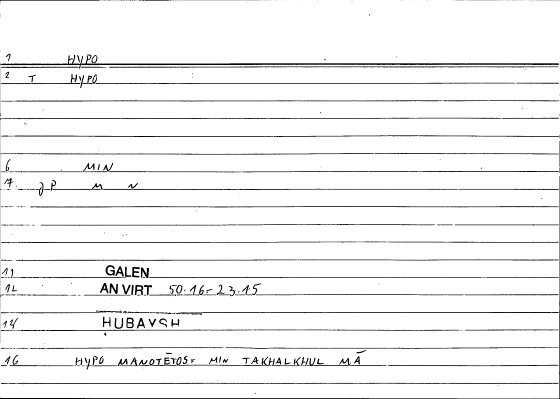 1 HYPO
2 T HYPO
6 MIN
7 JP M N
11 GALEN
12 AN VIRT 50.16-23.15
14 HUBAYSH
16 HYPO MANOTĒTOS: MIN TAKHALKHUL MĀ